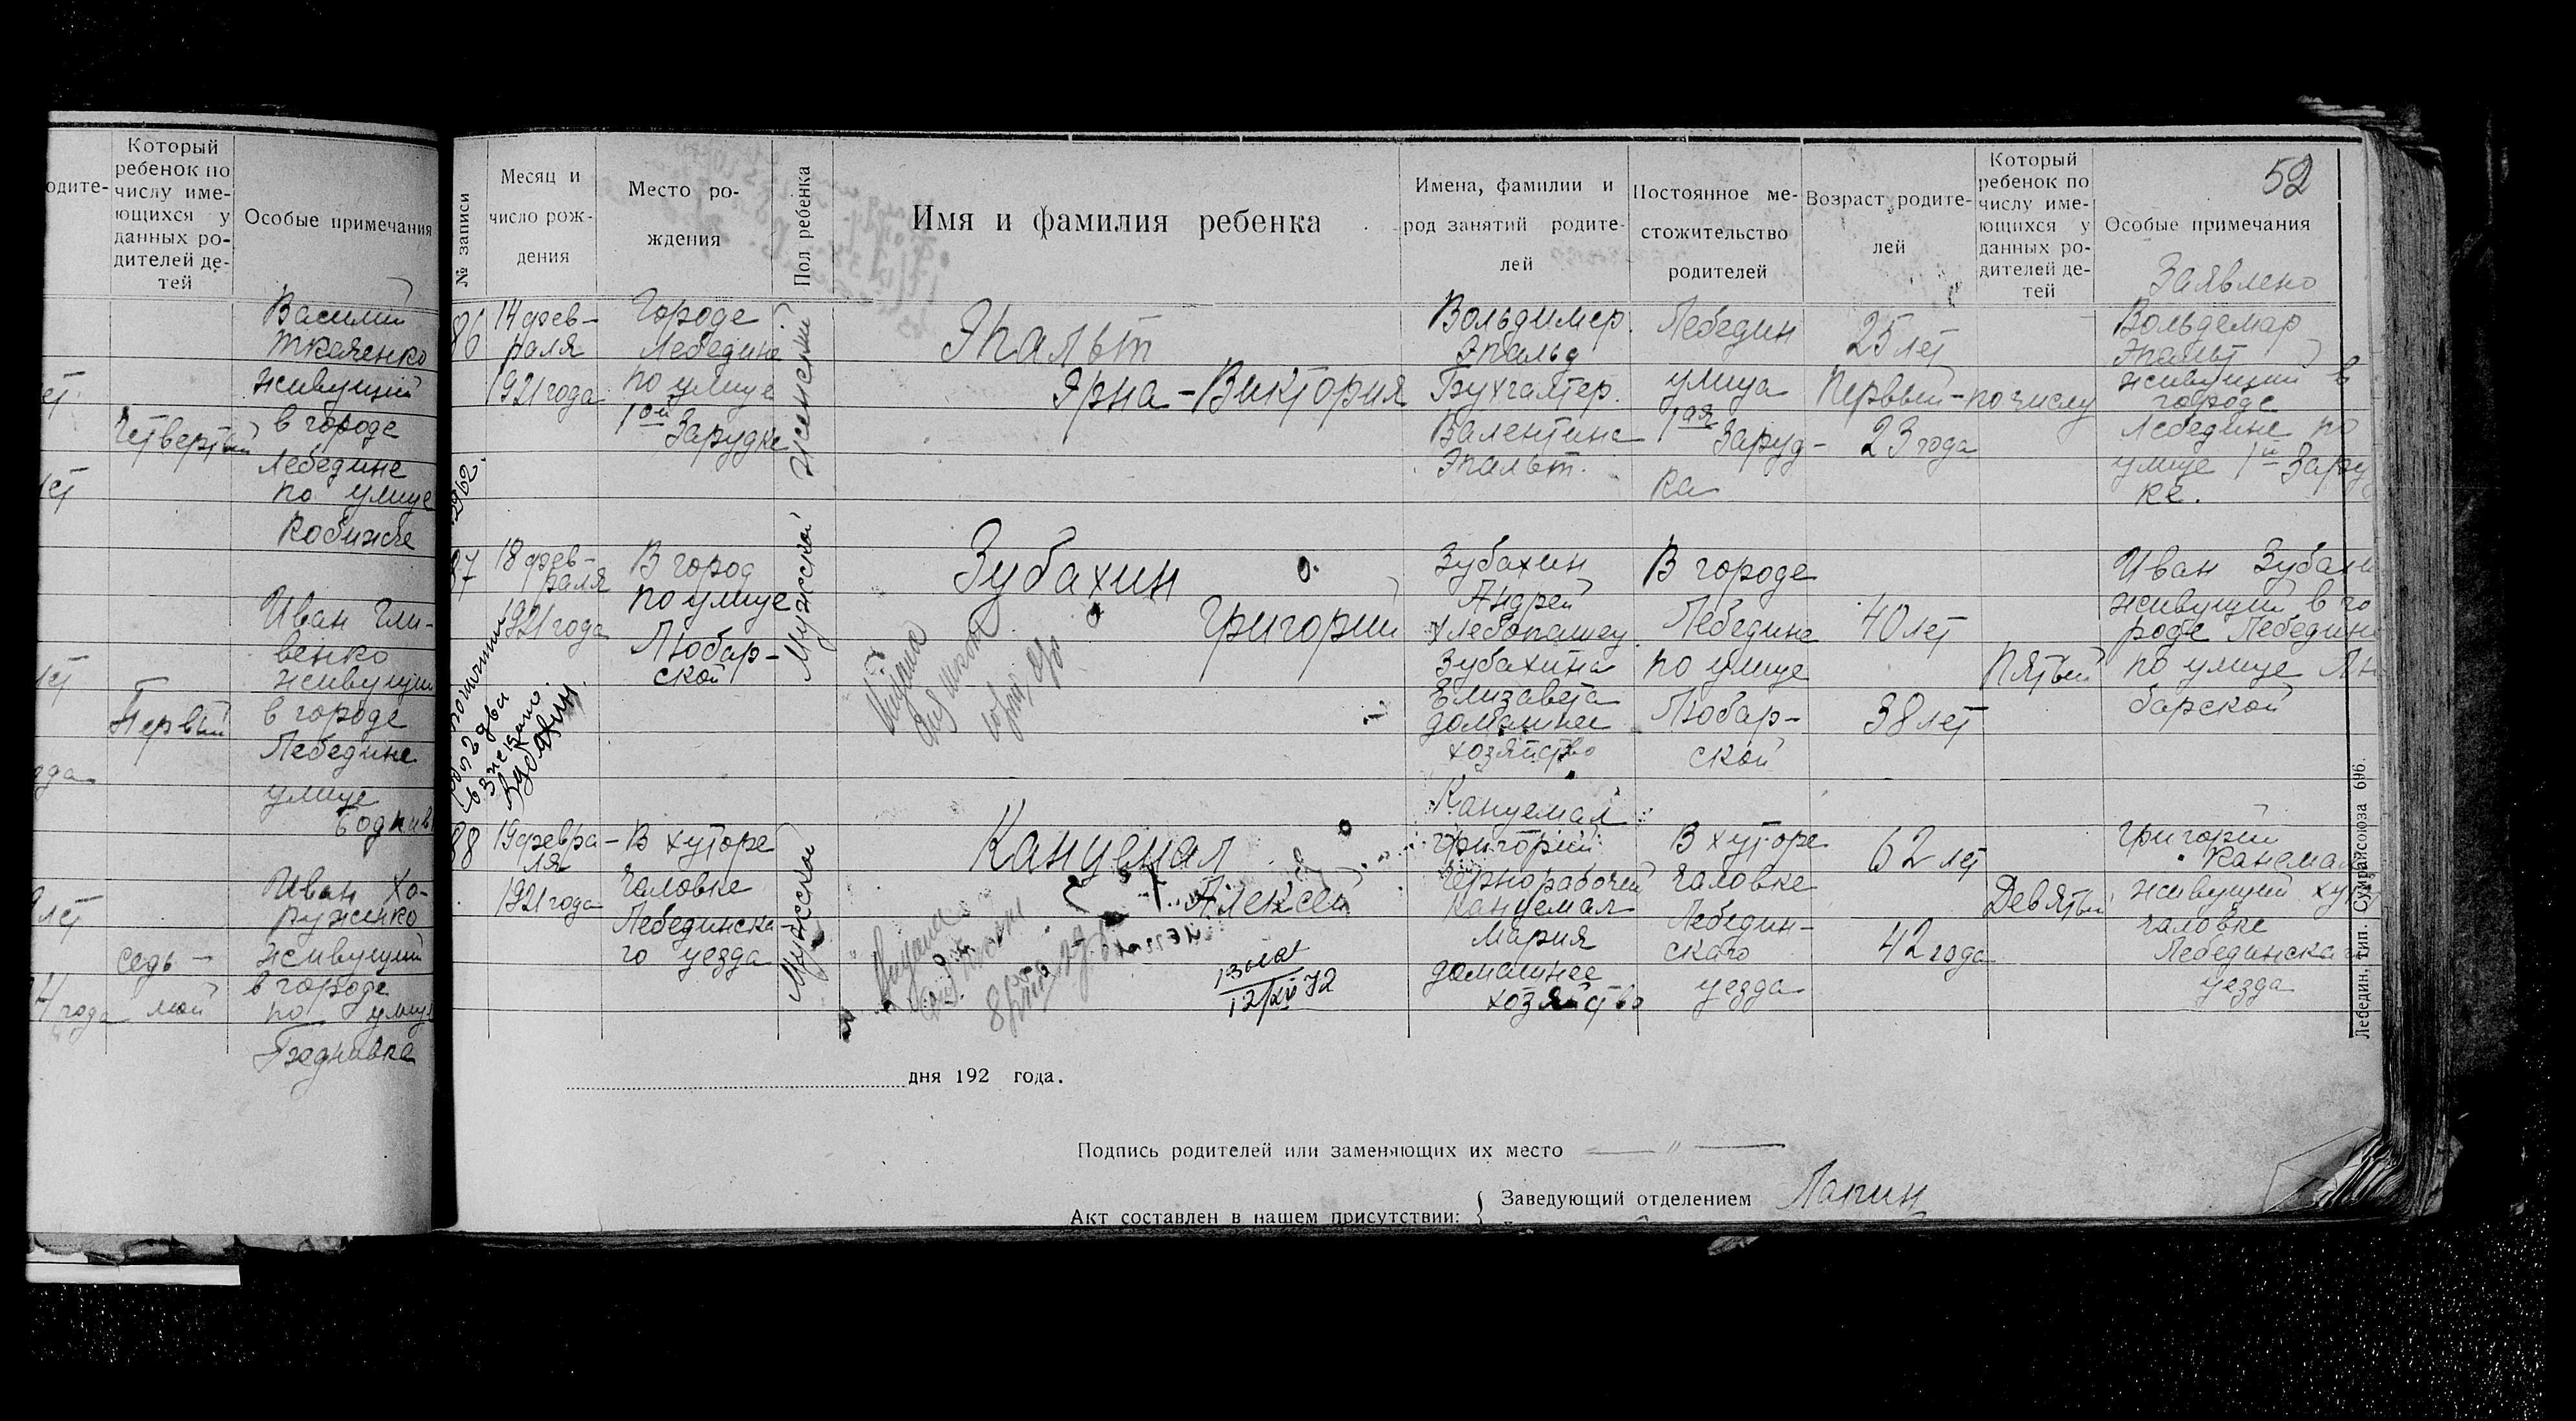 одите-
Который
ребенок по
числу име-
ющихся у
данных ро-
дителей де-
тей
Особые примечания
Василий
Ткаченко
живущий
в городе
Лебедине
по улице
Кобижче
Четвертый
Иван Гли-
венко
живущий
в городе
Лебедине
улице
Первый
Иван Хо-
руженко
живущий
в городе
по улице
седь-
мой
года
52
№ записи
Месяц и
число рож-
дения
Место ро-
ждения
Пол ребенка
Имя и фамилия ребенка
Имена, фамилии и
род занятий родите-
лей
Постоянное ме-
стожительство
родителей
Возраст родите-
лей
Который
ребенок по
числу име-
ющихся у
данных ро-
дителей де-
тей
Особые примечания
Заявлено
86
14 фев-
раля
1921 года
Городе
Лебедине
по улице
1ой Зарудке
Женский
Эпальт
Ярна-Виктория
Вольдимер
Эпальд
Бухгалтер.
Валентина
Эпальт.
Лебедин
улица
1ая Заруд-
ка
25 лет
23 года
Первый - по числу
Вольдемар
Эпальт
живущий в
городе
Лебедине по
улице 1й Зару
ке.
87
18 фев-
раля
1921 года
В город
по улице
Любар-
ской
Мужской
Зубахин
Григорий
Зубахин
Андрей
хлебопашец
Зубахина
Елизавета
домашнее
хозяйство
В городе
Лебедине
по улице
Любар-
ской
40 лет
38 лет
Пятый
Иван Зубахи
живущий в го
роде Лебедине
по улице Лю
барской
88
19 февра-
ля
1921 года
В хуторе
Галовке
Лебединска
го уезда
Мужской
Канцемал
Алексей
Канцемал
Григорий
Чернорабочий
Канцемал
Мария
домашнее
хозяйство
В хуторе
Галовке
Лебедин-
ского
уезда
62 лет
42 года
Девятый
Григорий
Канемал
живущий хут
Галовке
Лебединска
уезда
Лебедин, тип. Сумрайсоюза 696.
дня 192 года.
Подпись родителей или заменяющих их место
Акт составлен в нашем присутствии:
Заведующий отделением Лапин